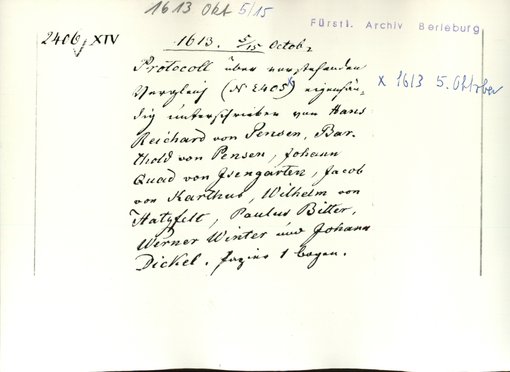 1613 Okt 5/15
Fürstl. Archiv Berleburg
2406, XIV
1613. 5/15 Octob.
Protocoll über vorstehenden
Vergleich (N 2405) eigenhän-
dig unterschrieben von Hans
Reichard von Pensen, Bar-
thold von Pensen, Johann
Quad von Isengarten, Jacob
von Karthus, Wilhelm von
Hatzfelt, Paulus Bitter,
Werner Winter und Johann
Dickel. Papier 1 Bogen.
x 1613 5. Oktober